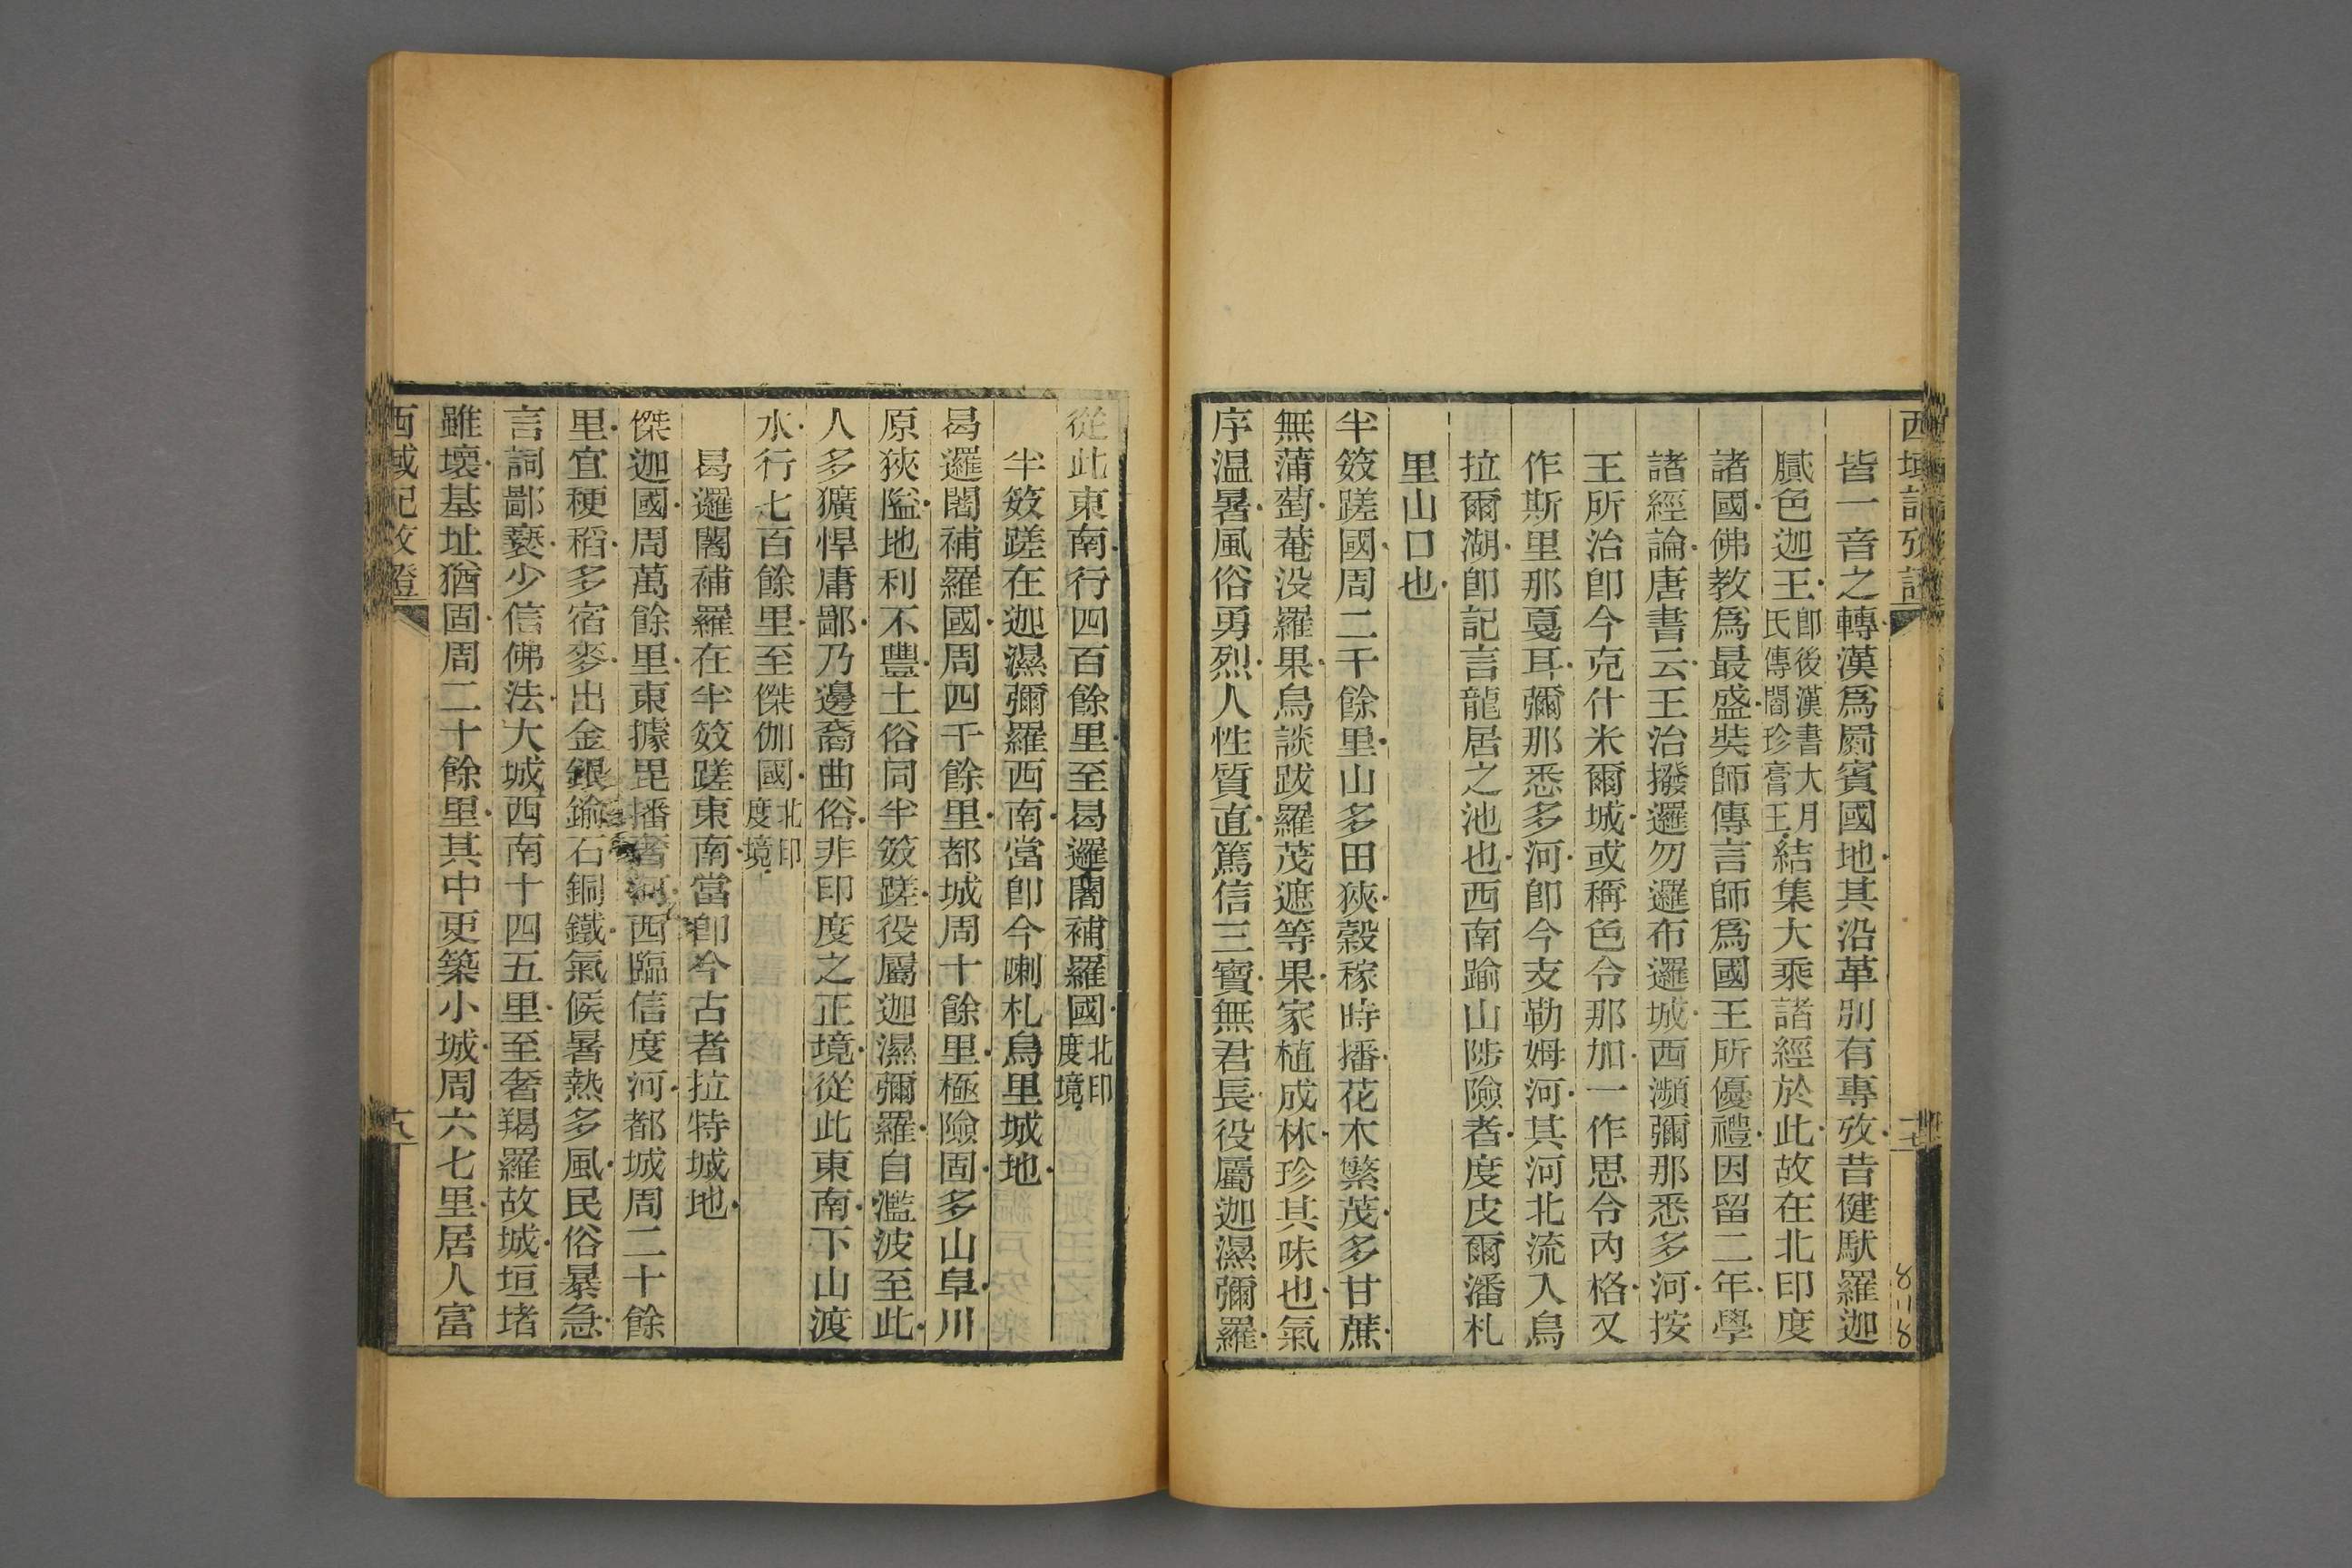 西域記攷證
皆一音之轉漢爲罽賓國地其沿革別有專攷昔健馱羅迦
膩色迦王卽後漢書大月氏傳閻珍膏王結集大乘諸經於此故在北印度
諸國佛教爲最盛奘師傳言師爲國王所優禮因留二年學
諸經論唐書云王治撥邏勿邏布邏城西瀕彌那悉多河按
王所治卽今克什米爾城或稱色令那加一作思令內格又
作斯里那戛耳彌那悉多河卽今支勒姆河其河北流入烏
拉爾湖卽記言龍居之池也西南踰山陟險者度皮爾潘札
里山口也
半笯蹉國周二千餘里山多田狹穀稼時播花木繁茂多甘蔗
無蒲萄菴没羅果烏談跋羅茂遮等果家植成林珍其味也氣
序溫暑風俗勇烈人性質直篤信三寶無君長役屬迦濕彌羅
從此東南行四百餘里至曷邏闍補羅國北印度境
半笯蹉在迦濕彌羅西南當卽今喇札烏里城地
曷邏闍補羅國周四千餘里都城周十餘里極險固多山阜川
原狹隘地利不豐土俗同半笯蹉役屬迦濕彌羅自濫波至此
人多獷悍庸鄙乃邊裔曲俗非印度之正境從此東南下山渡
水行七百餘里至傑伽國北印度境
曷邏闍補羅在半笯蹉東南當卽今古者拉特城地
傑迦國周萬餘里東據毘播奢河西臨信度河都城周二十餘
里宜稉稻多宿麥出金銀鍮石銅鐵氣候暑熱多風民俗暴急
言詞鄙褻少信佛法大城西南十四五里至奢羯羅故城垣堵
雖壞基址猶固周二十餘里其中更築小城周六七里居人富
西域記攷證
六